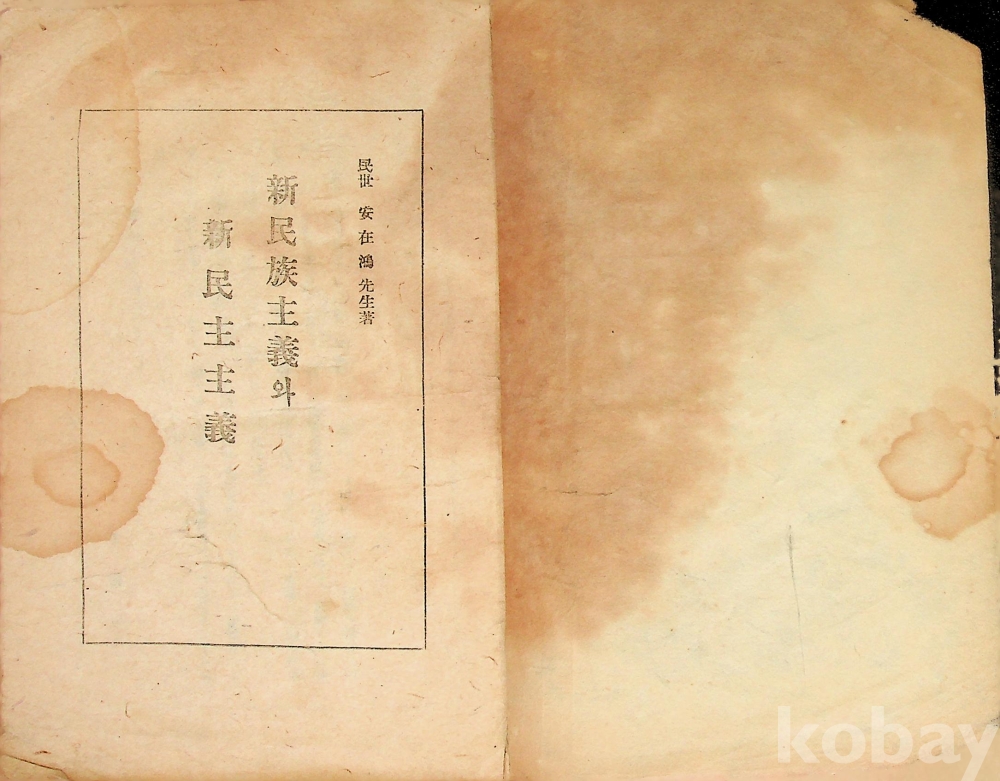 民世 安在鴻 先生著
新民族主義와
新民主主義
kobay